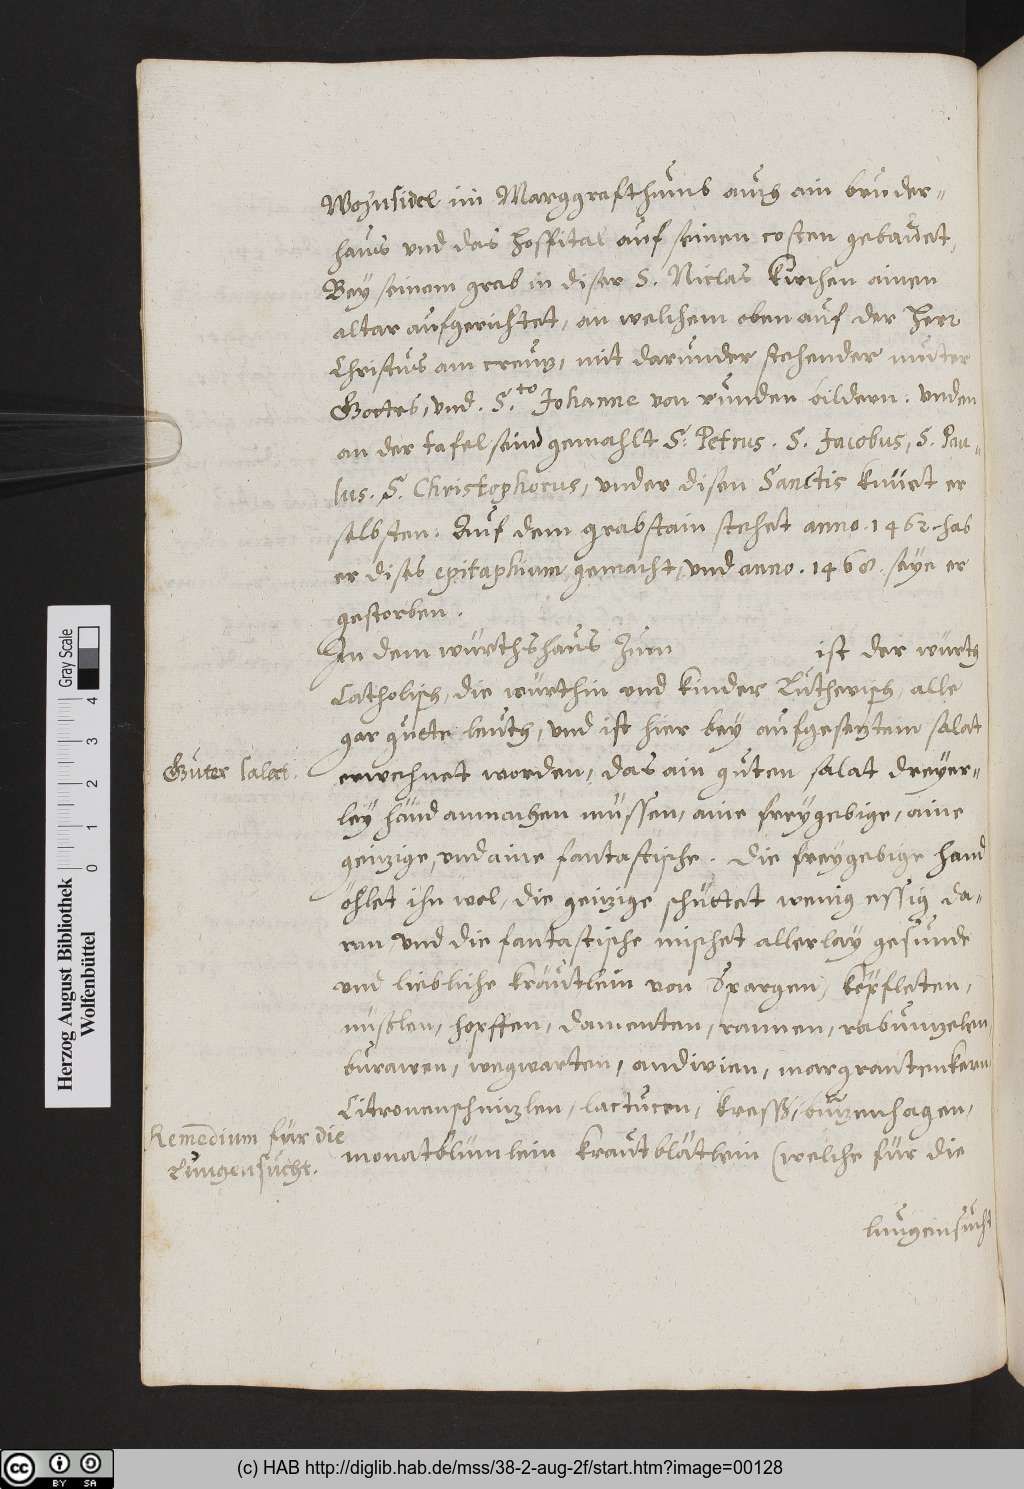 Wohnsidel im Marggrafthumb auch ain bruder-
haus vnd das hospital auf seinen costen gebauet,
Bey seinem grab in diser S. Niclas Kirchen ainen
altar aufgerichtet, an welchem oben auf der Herr
Christus am creutz, mit darunder stehender mutter
Gottes, vnd S.to Johanne von runden bildern. vnden
an der tafel seind gemahlt S. Petrus. S. Jacobus, S. Pau-
lus. S. Christophorus, vnder disen Sanctis knuet er
selbsten. Auf dem grabstain stehet anno. 1462. hab
er dises epitaphium gemacht, vnd anno. 1468. seye er
gestorben.
In dem würthshaus zum ist der würth
Catholisch, die würthin vnd kinder Lutherisch, alle
gar gutte leuth, vnd ist hier bey aufgesetztem salat
Guter salat.
erwehnet worden, das ain guten salat dreyer-
ley händ anmachen müssen, aine freygebige, aine
geitzige, vnd aine fantastische. die freygebige hand
öhlet ihn wol, die geitzige schüttet wenig essig da-
ran vnd die fantastische mischet allerlay gesunde
und liebliche kräutlein von Spargen, köpfleten,
nüßlen, hopffen, damenten, rannen, rabuntzelen
burawen, wegwarten, andivien, margrantenkern
Citronenschnitzlen, lactucen, kress, butzenhagen,
Remedium für die
Lungensucht.
monatblümlein krautblätlein (welche für die
lungensucht
Herzog August Bibliothek
Wolfenbüttel
0 1 2 3 4
Gray Scale
cc BY SA
(c) HAB http://diglib.hab.de/mss/38-2-aug-2f/start.htm?image=00128